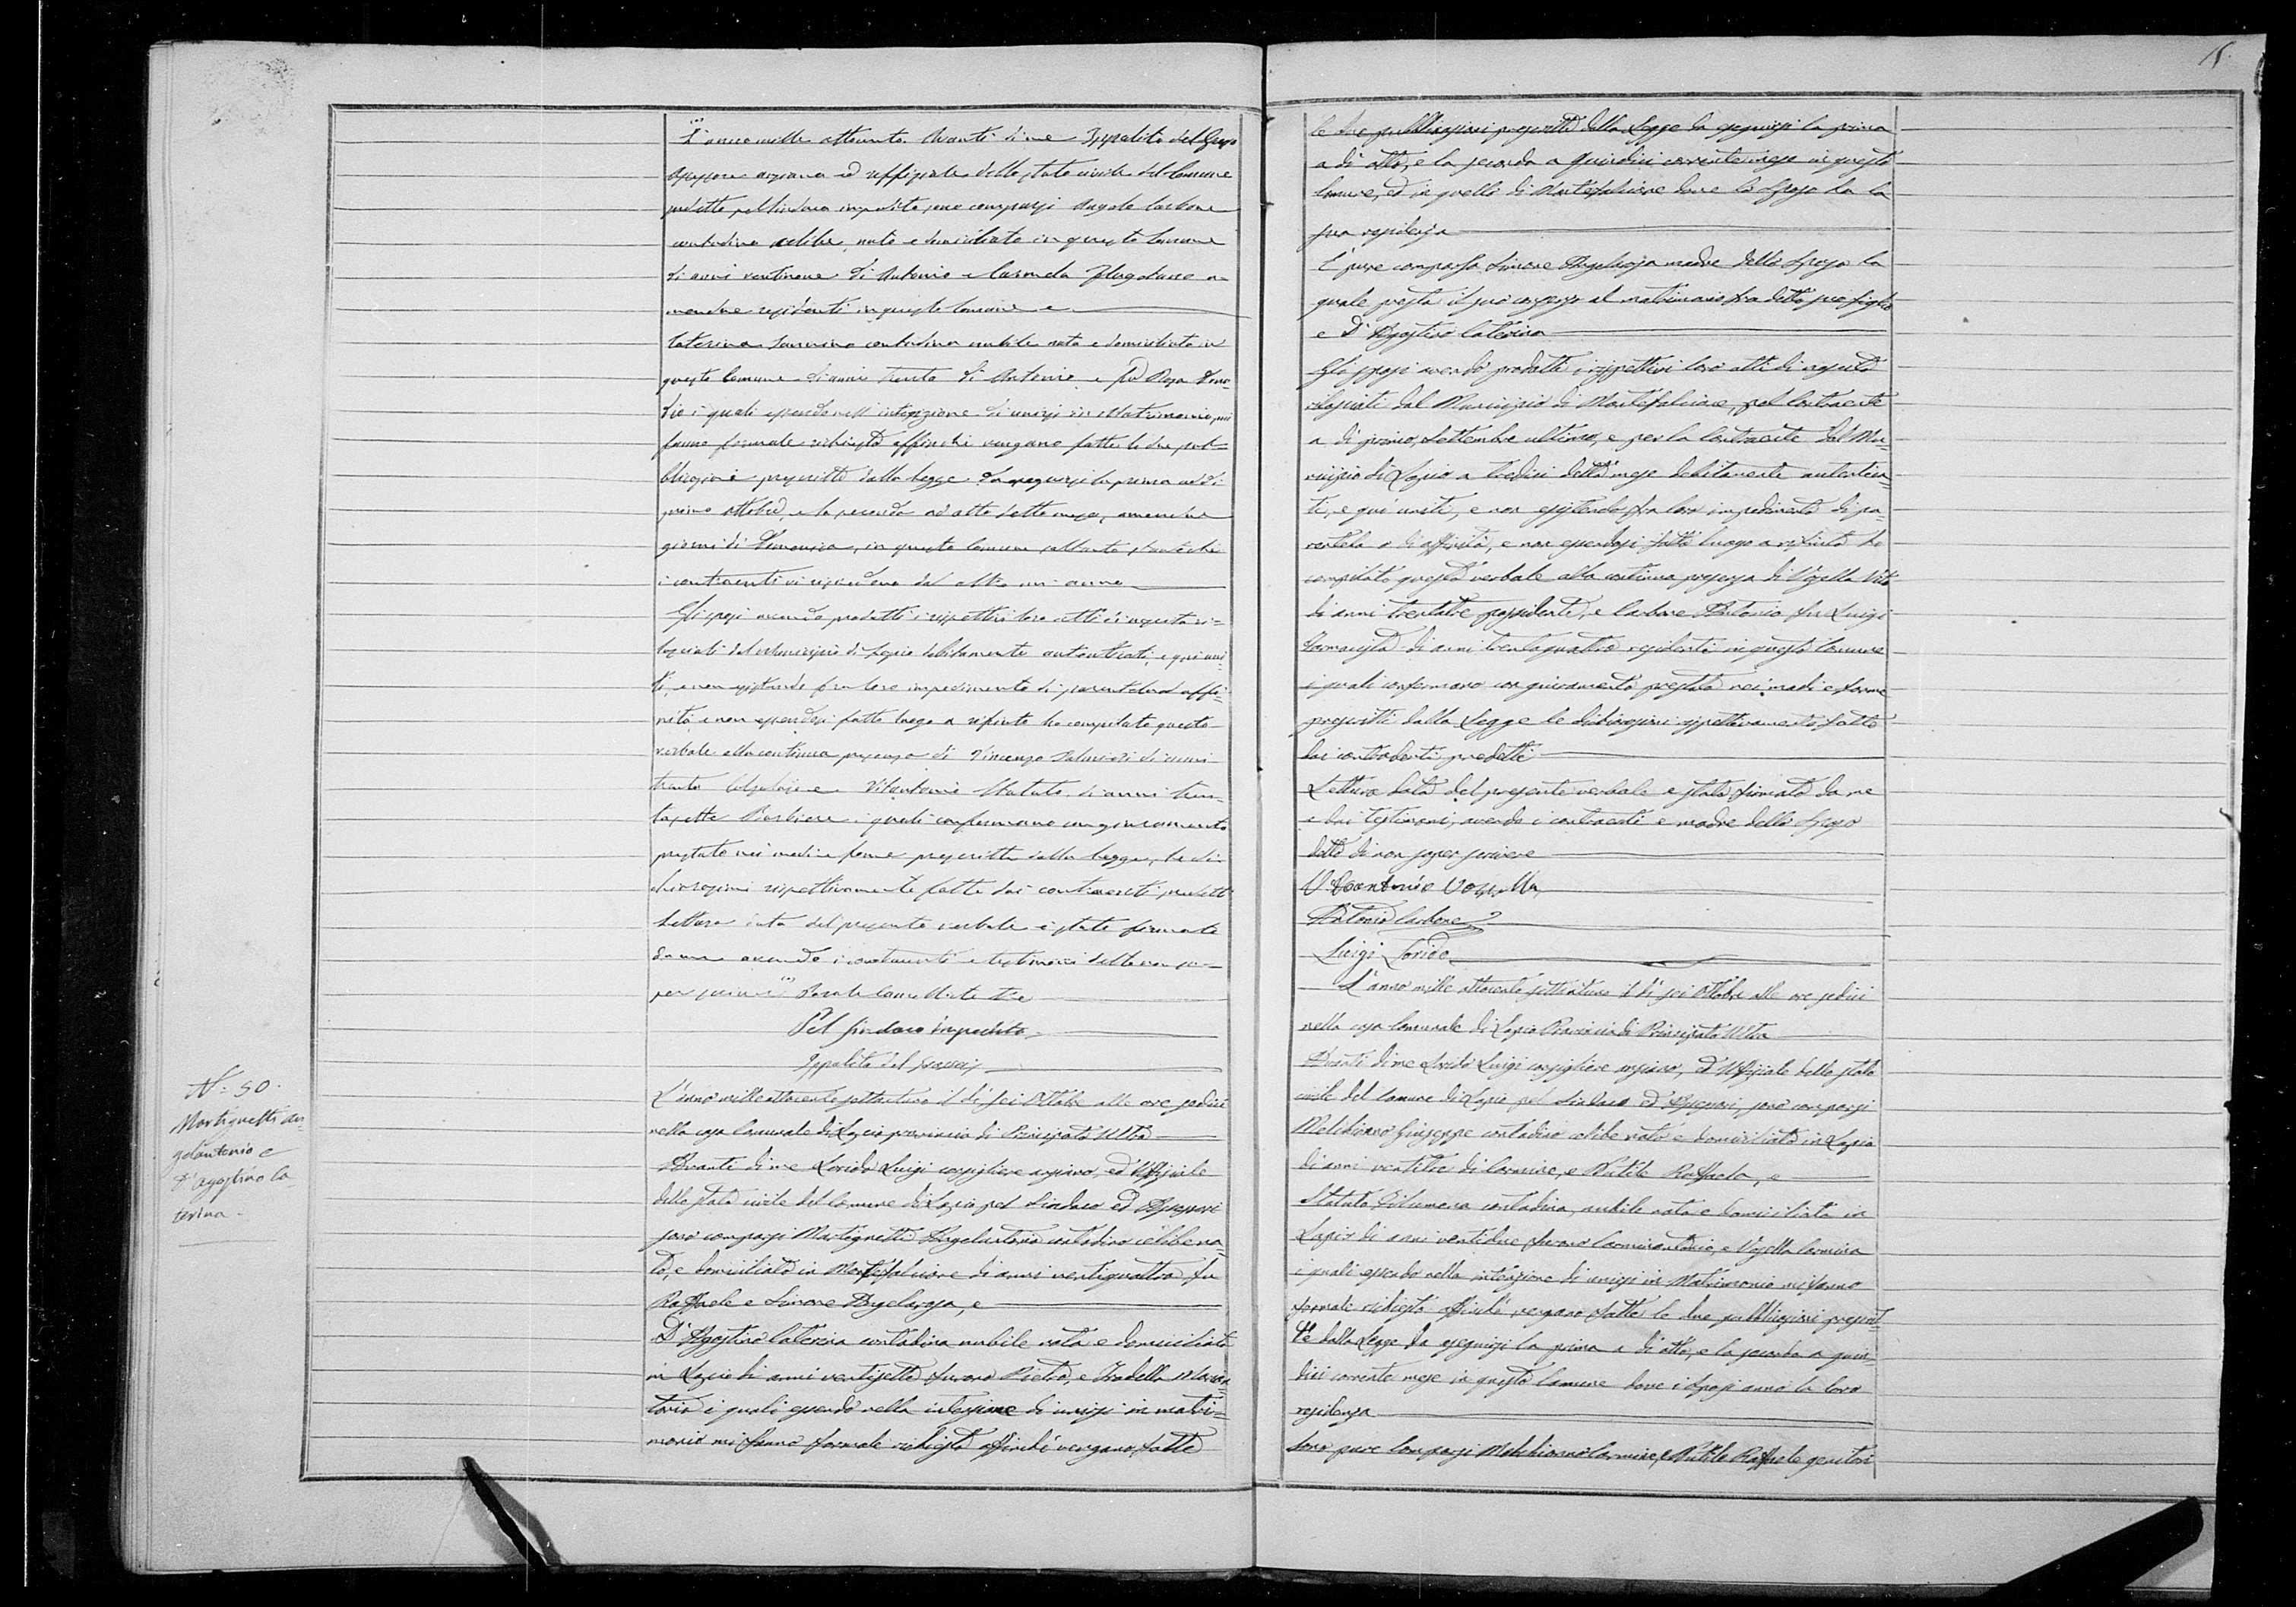 15.
L'anno mille ottocento. Avanti di me Ippolito del
Assessore anziano ed uffiziale dello stato civile del Comune
predetto, pel Sindaco impedito, sono comparsi Angelo Carbone
contadino celibe, nato e domiciliato in questo Comune
di anni ventinove di Antonio e Carmela
residenti in questo Comune e
Caterina contadina nubile nata e domiciliata in
questo Comune di anni trenta di Antonio e fu Rosa
i quali essendo nell'intenzione di unirsi in Matrimonio, mi
fanno formale richiesta affinchè vengano fatte le due pub=
blicazioni prescritte dalla legge da eseguirsi la prima ad di
primo Ottobre, e la seconda ad otto detto mese,
giorni di Domenica, in questo Comune soltanto, stantechè
i contraenti vi risiedono dal oltre un anno
Gli sposi avendo prodotti i rispettivi loro atti di nascita ri=
lasciati dal Municipio di Lapio debitamente autenticati, e qui uni=
ti, e non esistendo fra loro impedimento di parentela od affi=
nità e non essendosi fatto luogo a rifiuto ho compilato questo
verbale alla continua presenza di Vincenzo di anni
trenta e Vitantonio Statuto di anni tren=
tasette Barbiere i quali confermano con giuramento
prestato nei modi e forme prescritte dalla legge, le di=
chiarazioni rispettivamente fatte dai contraenti predetti
Lettura data del presente verbale è stato firmato
da me avendo i contraenti e testimoni detto non sa=
per scrivere
Pel Sindaco impedito
Ippolito del
N. 50.
Martignetti An=
gelantonio e
D'Agostino Ca=
terina
L'anno mille ottocento settantuno il dì sei Ottobre alle ore sedici
nella casa Comunale di Lapio provincia di Principato Ultra
Avanti di me Lorido Luigi consigliere anziano, ed Uffiziale
dello stato civile del Comune di Lapio pel Sindaco ed Assessori
sono comparsi Martignetti Angelantonio contadino celibe na=
to, e domiciliato in Montefalcione di anni ventiquattro fu
Raffaele e Simone Angelarosa, e
D'Agostino Caterina contadina nubile nata e domiciliata
in Lapio di anni ventisette furono Pietro, e
i quali essendo nella intenzione di unirsi in matri=
monio mi fanno formale richiesta affinché vengano fatte
le due pubblicazioni prescritte dalla Legge da eseguirsi la prima
a dì otto, e la seconda a quindici corrente mese in questo
Comune, ed in quello di Montefalcione dove lo Sposo ha la
sua residenza
È pure comparsa Simone Angelarosa madre dello Sposo la
quale presta il suo consenso al matrimonio fra detto suo figlio
e D'Agostino Caterina
Gli sposi avendo prodotti i rispettivi loro atti di nascita
rilasciati dal Municipio di Montefalcione, pel Contraente
a dì primo, Settembre ultimo, e per la Contraente dal Mu=
nicipio di Lapio a tredici detto mese debitamente autentica=
ti, e quì uniti, e non esistendo fra loro impedimento di pa=
rentela o di affinità, e non essendosi fatto luogo a rifiuto ho
compilato questo verbale alla continua presenza di Vozella Vito
di anni trentatre possidente, e Carbone Antonio fu Luigi
Farmacista di anni trentaquattro residenti in questo Comune
i quali confermano con giuramento prestato nei modi e forme
prescritti dalla Legge le dichiarazioni rispettivamente fatte
dai contraenti predetti
Lettura data del presente verbale e stato firmato da me
e dai testimoni, avendo i contraenti e madre dello Sposo
detto di non saper scrivere
Antonio Carbone
Luigi Lorido
L'anno mille ottocento settantuno il dì sei Ottobre alle ore sedici
nella casa Comunale di Lapio Provincia di Principato Ultra
Avanti di me Lorido Luigi consigliere anziano, ed Uffiziale dello stato
civile del Comune di Lapio pel Sindaco ed Assessori, sono comparsi
Melchionno Giuseppe contadino celibe nato e domiciliato in Lapio
di anni ventitre di Carmine, e Raffaela, e
Statuto Filomena contadina, nubile nata e domiciliata in
Lapio di anni ventidue furono Carminantonio, e Vozella Carmina
i quali essendo nella intenzione di unirsi in Matrimonio mi fanno
formale richiesta affinché vengano fatte le due pubblicazioni prescrit=
te dalla Legge da eseguirsi la prima a dì otto, e la seconda a quin=
dici corrente mese in questo Comune dove i Sposi anno la loro
residenza
Sono pure comparsi Melchionno Carmine, e Raffaela genitori